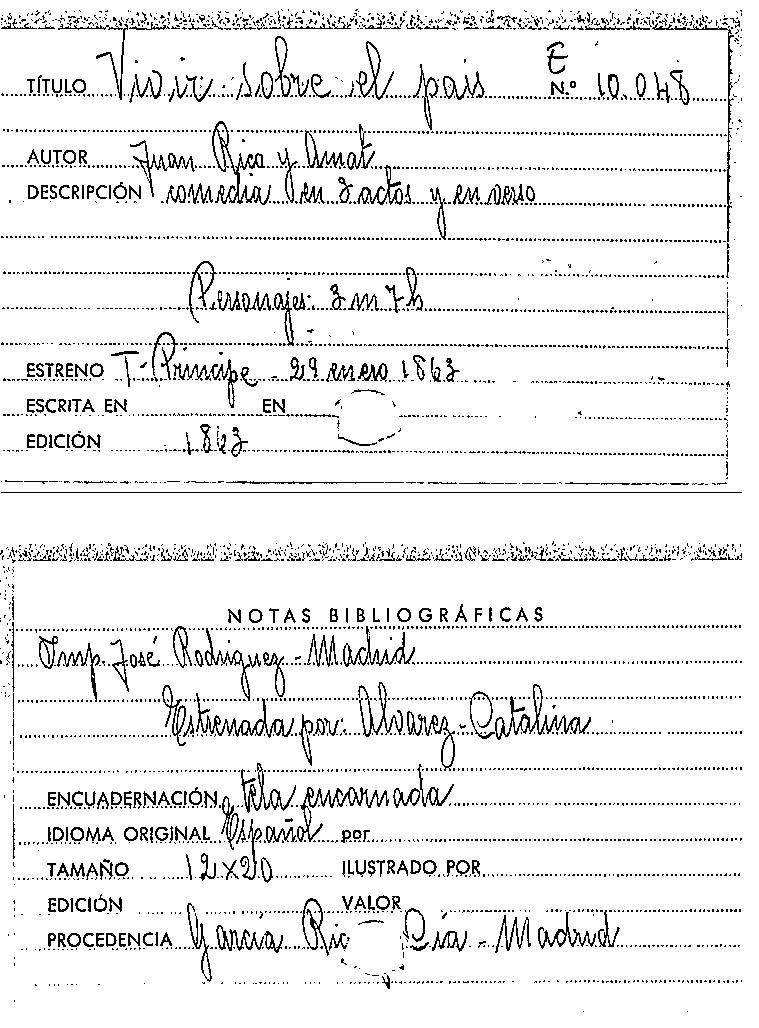 E
TÍTULO Vivir sobre el pais N.º 10.048
AUTOR Juan Rico y Amat
DESCRIPCIÓN comedia en 3 actos y en verso
Personajes: 3 m 7 h
ESTRENO T. Principe - 29 enero 1863
ESCRITA EN EN
EDICIÓN 1863
NOTAS BIBLIOGRÁFICAS
Imp. José Rodriguez - Madrid
Estrenada por: Alvarez - Catalina
ENCUADERNACIÓN tela encarnada
IDIOMA ORIGINAL Español por
TAMAÑO 12x20 ILUSTRADO POR
EDICIÓN VALOR
PROCEDENCIA García Rico Cía - Madrid